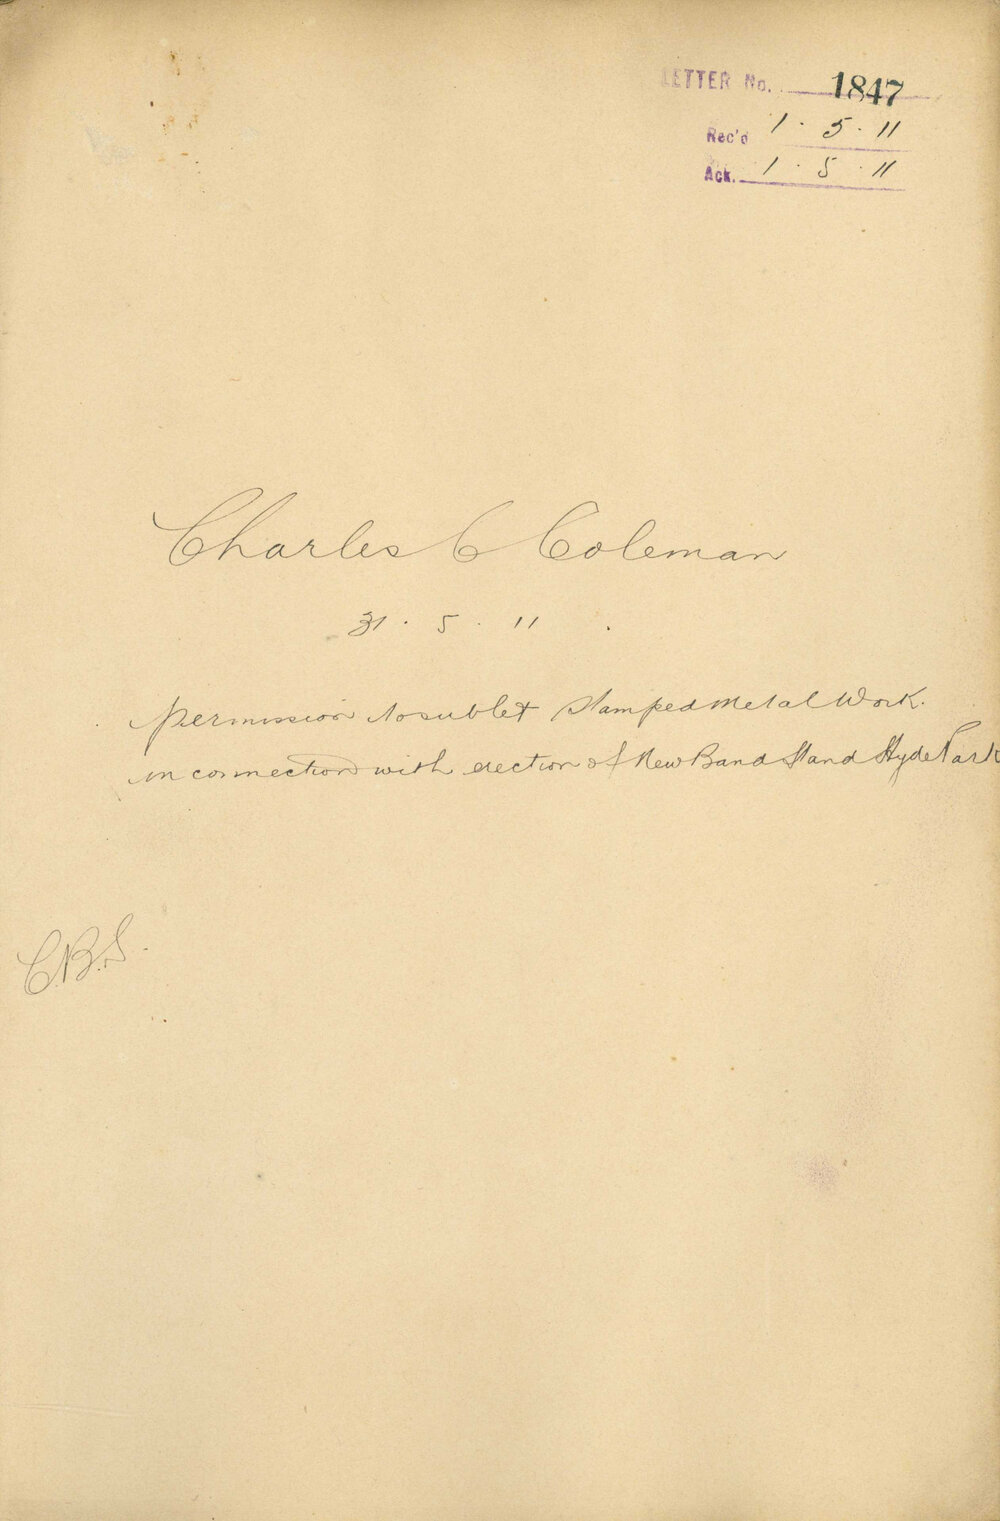 LETTER No. 1847
Rec'd 1 · 5 · 11
Ack. 1 · 5 · 11
Charles C Coleman
31 · 5 · 11
permission to sublet stamped metal work.
in connection with erection of New Band Stand Hyde Park
C.B.S.